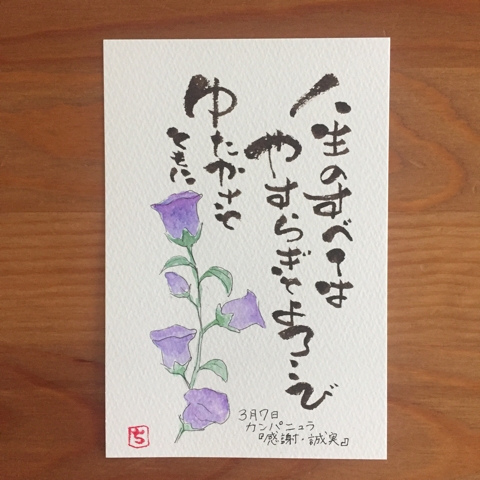 人生のすべては
やすらぎとよろこび
ゆたかさと
ともに
3月7日
カンパニュラ
『感謝・誠実』
ち